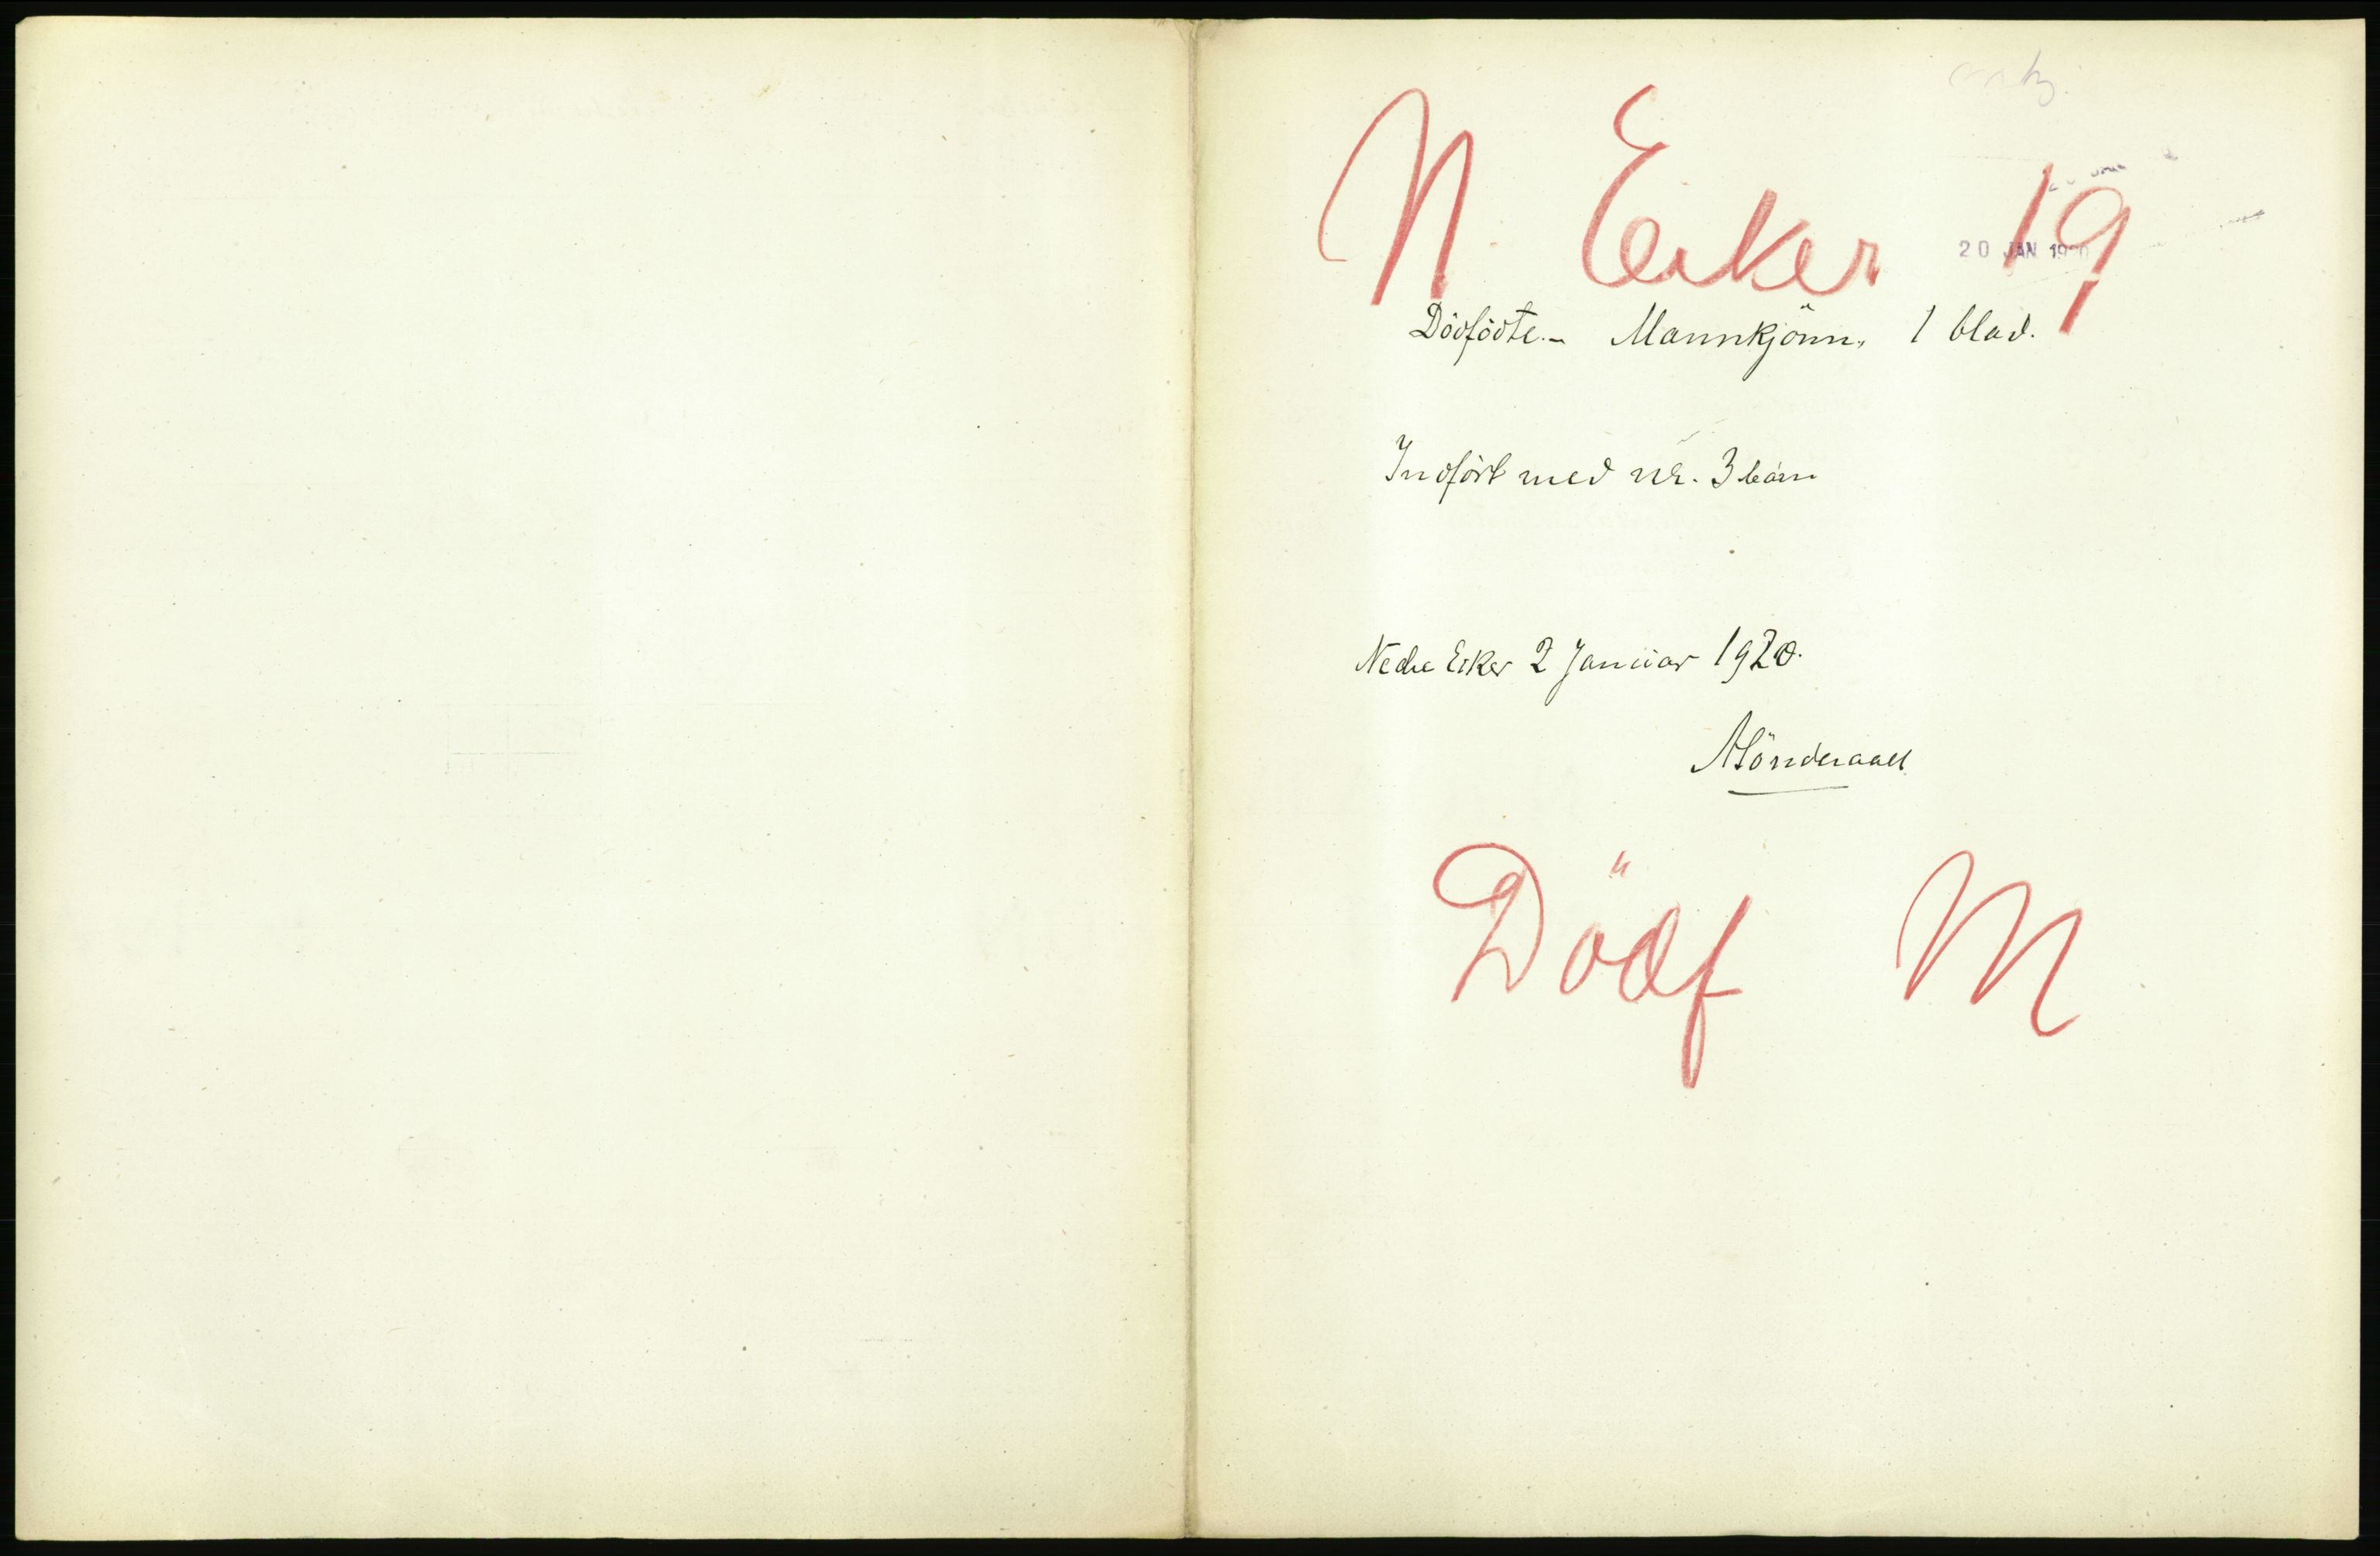 N. Eeker 19
20 JAN 1920
Dödfödte.- Mannkjönn. 1 blad.
Indfört med nr. 3 barn
Nedre Eeker 2 Januar 1920.
Dödf M